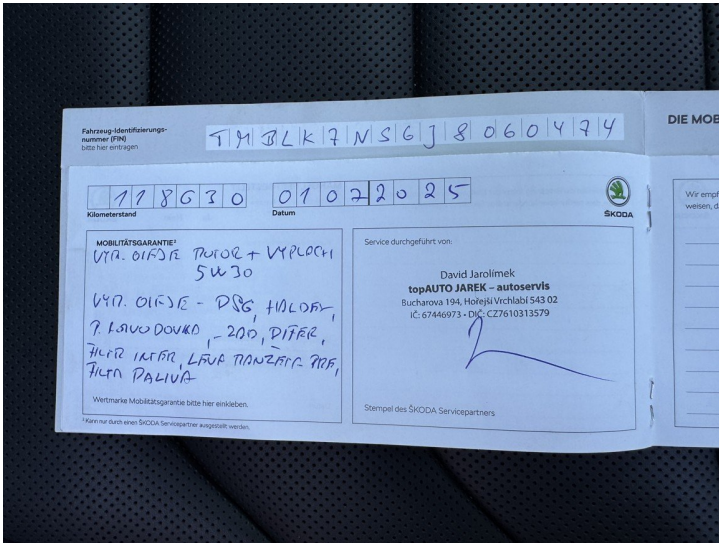 Fahrzeug-Identifizierungs-
nummer (FIN)
bitte hier eintragen
TMBLK7NS6J8060474
DIE MOB
118630
Kilometerstand
01072025
Datum
ŠKODA
Wir empf
weisen, d
MOBILITÄTSGARANTIE²
VYM. OLEJE MOTOR + VÝPLACH
5W30
VYM. OLEJE - DSG, HALDEX,
P. ROZVODOVKA, - ZAD, DIFER,
FILTR INTER, LEVÁ MANŽETA PŘE,
FILTR PALIVA
Wertmarke Mobilitätsgarantie bitte hier einkleben.
² Kann nur durch einen ŠKODA Servicepartner ausgestellt werden.
Service durchgeführt von:
David Jarolímek
topAUTO JAREK – autoservis
Bucharova 194, Hořejší Vrchlabí 543 02
IČ: 67446973 • DIČ: CZ7610313579
Stempel des ŠKODA Servicepartners